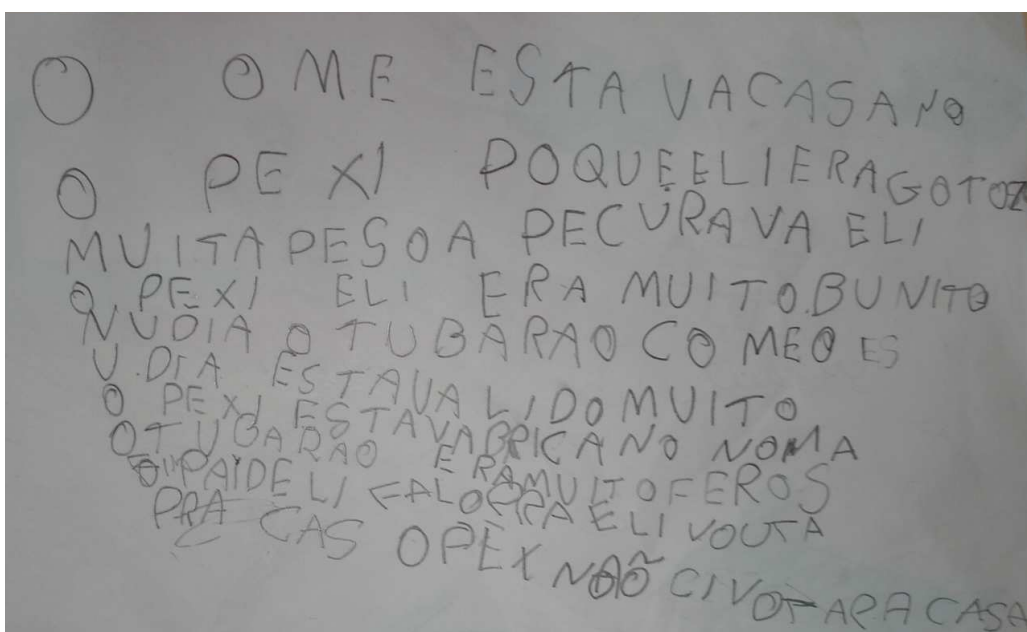 O OME ESTA VACASANO
O PEXI POQUEELIERAGOTOZ
MUITAPESOA PECURAVA ELI
O PEXI ELI ERA MUITO.BUNITO
NUDIA O TUBARAO COMEO ES
U.DIA ESTAVA LIDOMUITO
O PEXI ESTAVABRICANO NOMA
OTUBARAO ERAMUITOFEROS
O PAIDELI FALOPRA ELI VOUTA
PRA CAS OPEX NAÕ CIVOTARA CASA